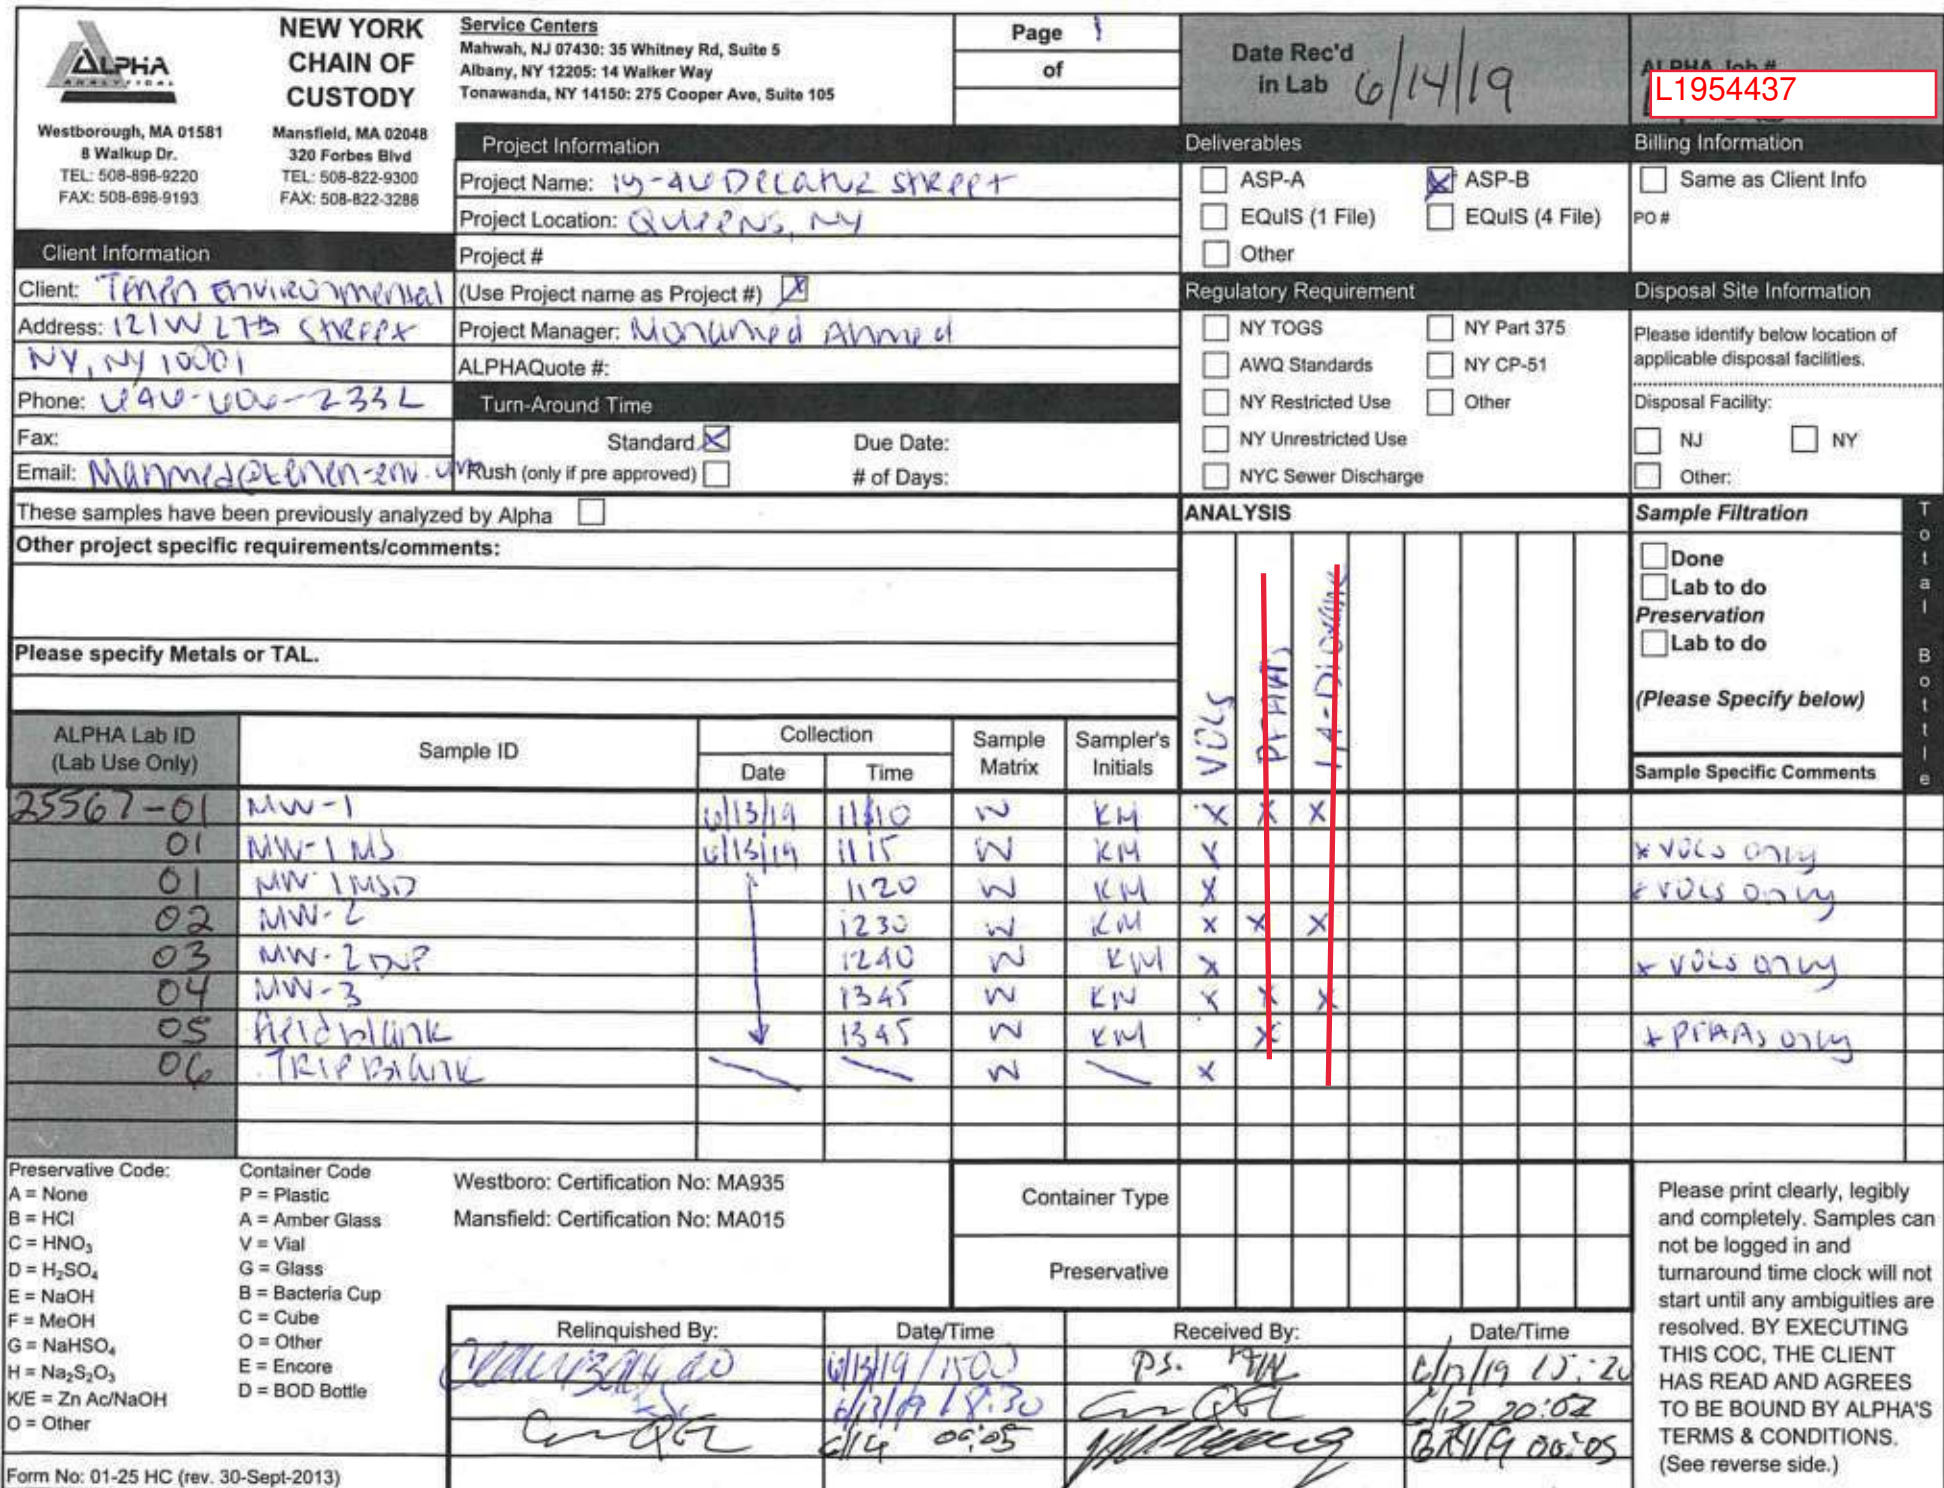 ALPHA
ANALYTICAL
NEW YORK
CHAIN OF
CUSTODY
Westborough, MA 01581
8 Walkup Dr.
TEL: 508-898-9220
FAX: 508-898-9193
Mansfield, MA 02048
320 Forbes Blvd
TEL: 508-822-9300
FAX: 508-822-3288
Service Centers
Mahwah, NJ 07430: 35 Whitney Rd, Suite 5
Albany, NY 12205: 14 Walker Way
Tonawanda, NY 14150: 275 Cooper Ave, Suite 105
Page 1
of
Date Rec'd
in Lab 6/14/19
ALPHA Job #
L1954437
Project Information
Project Name: 19-40 Decatur Street
Project Location: Queens, NY
Project #
(Use Project name as Project #) X
Project Manager: Mohamed Ahmed
ALPHAQuote #:
Turn-Around Time
Standard X Due Date:
Rush (only if pre approved) # of Days:
Client Information
Client: Tenen Environmental
Address: 121 W 27th Street
NY, NY 10001
Phone: 646-606-2332
Fax:
Email: Mahmed@tenen-env.com
Deliverables
ASP-A X ASP-B
EQuIS (1 File) EQuIS (4 File)
Other
Regulatory Requirement
NY TOGS NY Part 375
AWQ Standards NY CP-51
NY Restricted Use Other
NY Unrestricted Use
NYC Sewer Discharge
Billing Information
Same as Client Info
PO #
Disposal Site Information
Please identify below location of
applicable disposal facilities.
Disposal Facility:
NJ NY
Other:
These samples have been previously analyzed by Alpha
Other project specific requirements/comments:
Please specify Metals or TAL.
ANALYSIS
VOCs
PFAAs
1,4-Dioxane
Sample Filtration
Done
Lab to do
Preservation
Lab to do
(Please Specify below)
Total Bottle
ALPHA Lab ID
(Lab Use Only)
Sample ID
Collection
Date Time
Sample
Matrix
Sampler's
Initials
Sample Specific Comments
25567-01 MW-1 6/13/19 1110 W KM X X X
01 MW-1 MS 6/13/19 1115 W KM X * VOCs only
01 MW-1 MSD 1120 W KM X * VOCs only
02 MW-2 1230 W KM X X X
03 MW-2 DUP 1240 W KM X * VOCs only
04 MW-3 1345 W KM X X X
05 Field blank 1345 W KM X * PFAAs only
06 TRIP Blank W X
Preservative Code:
A = None
B = HCl
C = HNO₃
D = H₂SO₄
E = NaOH
F = MeOH
G = NaHSO₄
H = Na₂S₂O₃
K/E = Zn Ac/NaOH
O = Other
Container Code
P = Plastic
A = Amber Glass
V = Vial
G = Glass
B = Bacteria Cup
C = Cube
O = Other
E = Encore
D = BOD Bottle
Westboro: Certification No: MA935
Mansfield: Certification No: MA015
Container Type
Preservative
Relinquished By: Date/Time Received By: Date/Time
6/13/19 / 1500 6/13/19 15:20
6/13/19 18:30 6/13 20:02
6/14 00:05 6/14/19 00:05
Please print clearly, legibly
and completely. Samples can
not be logged in and
turnaround time clock will not
start until any ambiguities are
resolved. BY EXECUTING
THIS COC, THE CLIENT
HAS READ AND AGREES
TO BE BOUND BY ALPHA'S
TERMS & CONDITIONS.
(See reverse side.)
Form No: 01-25 HC (rev. 30-Sept-2013)